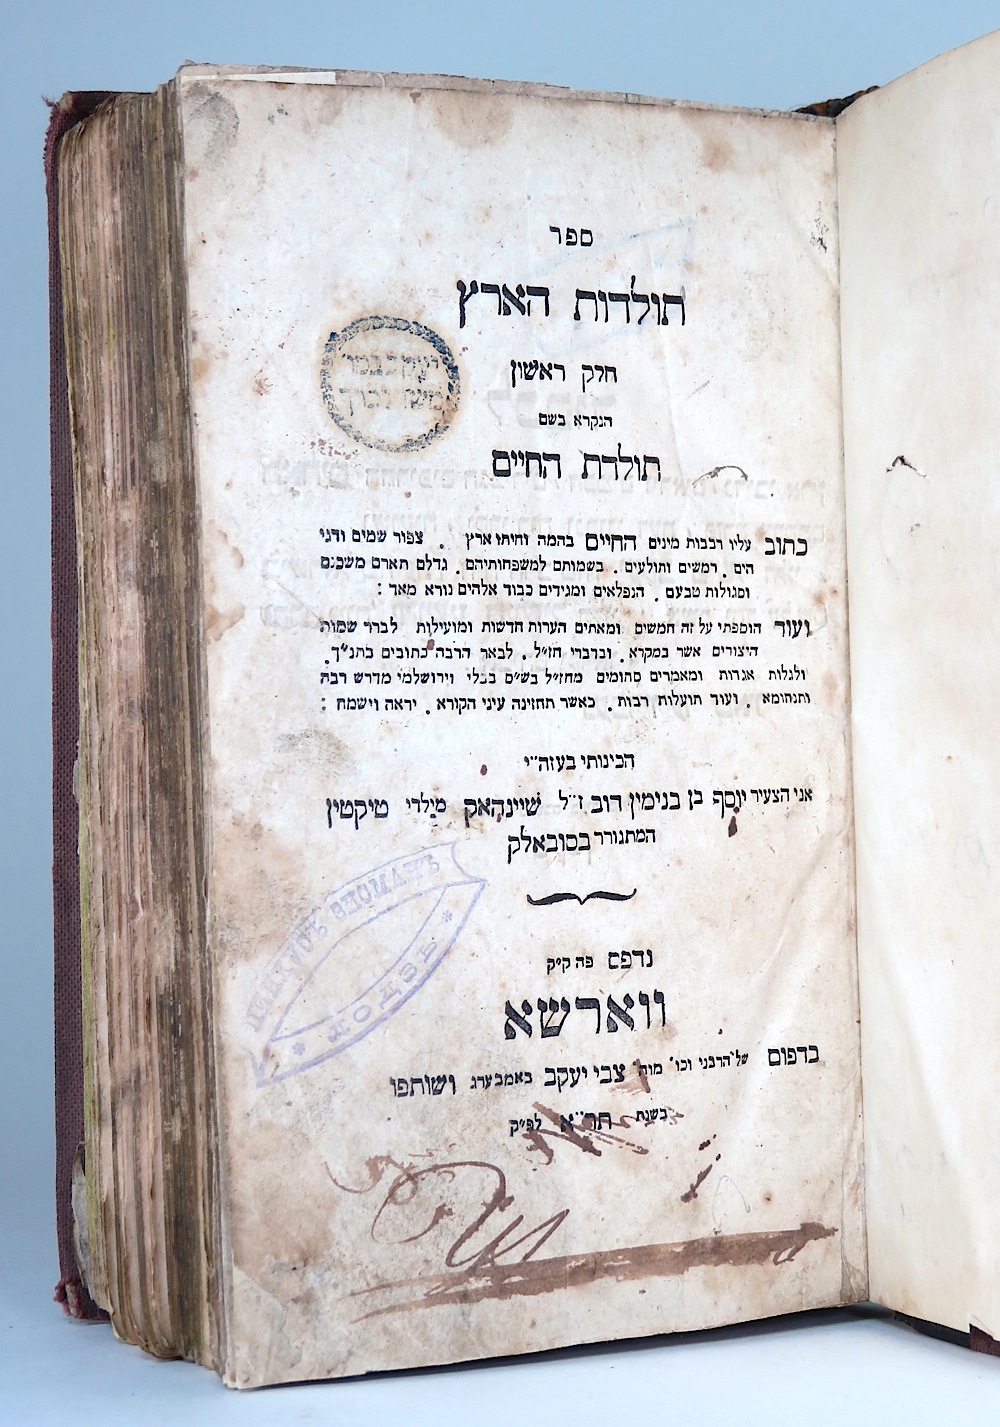 ספר
תולדות הארץ
חלק ראשון
הנקרא בשם
תולדת החיים
כתוב עליו רבבות מינים החיים בהמה וחיתו ארץ . צפור שמים ודגי
הים . רמשים ותולעים . בשמותם למשפחותיהם . גדלם תארם משכנם
וסגולות טבעם . הנפלאים ומגידים כבוד אלהים נורא מאד :
ועוד הוספתי על זה חמשים ומאתים הערות חדשות ומועילות לברר שמות
היצורים אשר במקרא . ובדברי חז״ל . לבאר הרבה כתובים בתנ״ך .
ולגלות אגדות ומאמרים סתומים מחז״ל בש״ס בבלי וירושלמי מדרש רבה
ותנחומא . ועוד תועלות רבות . כאשר תחזינה עיני הקורא . יראה וישמח :
הכינותי בעזה״י
אני הצעיר יוסף בן בנימין דוב ז״ל שיינהאק מילדי טיקטין
המתגורר בסובאלק
נדפס פה ק״ק
ווארשא
בדפוס של הרבני וכו׳ מוה׳ צבי יעקב באמבערג ושותפו
בשנת תר״א לפ״ק